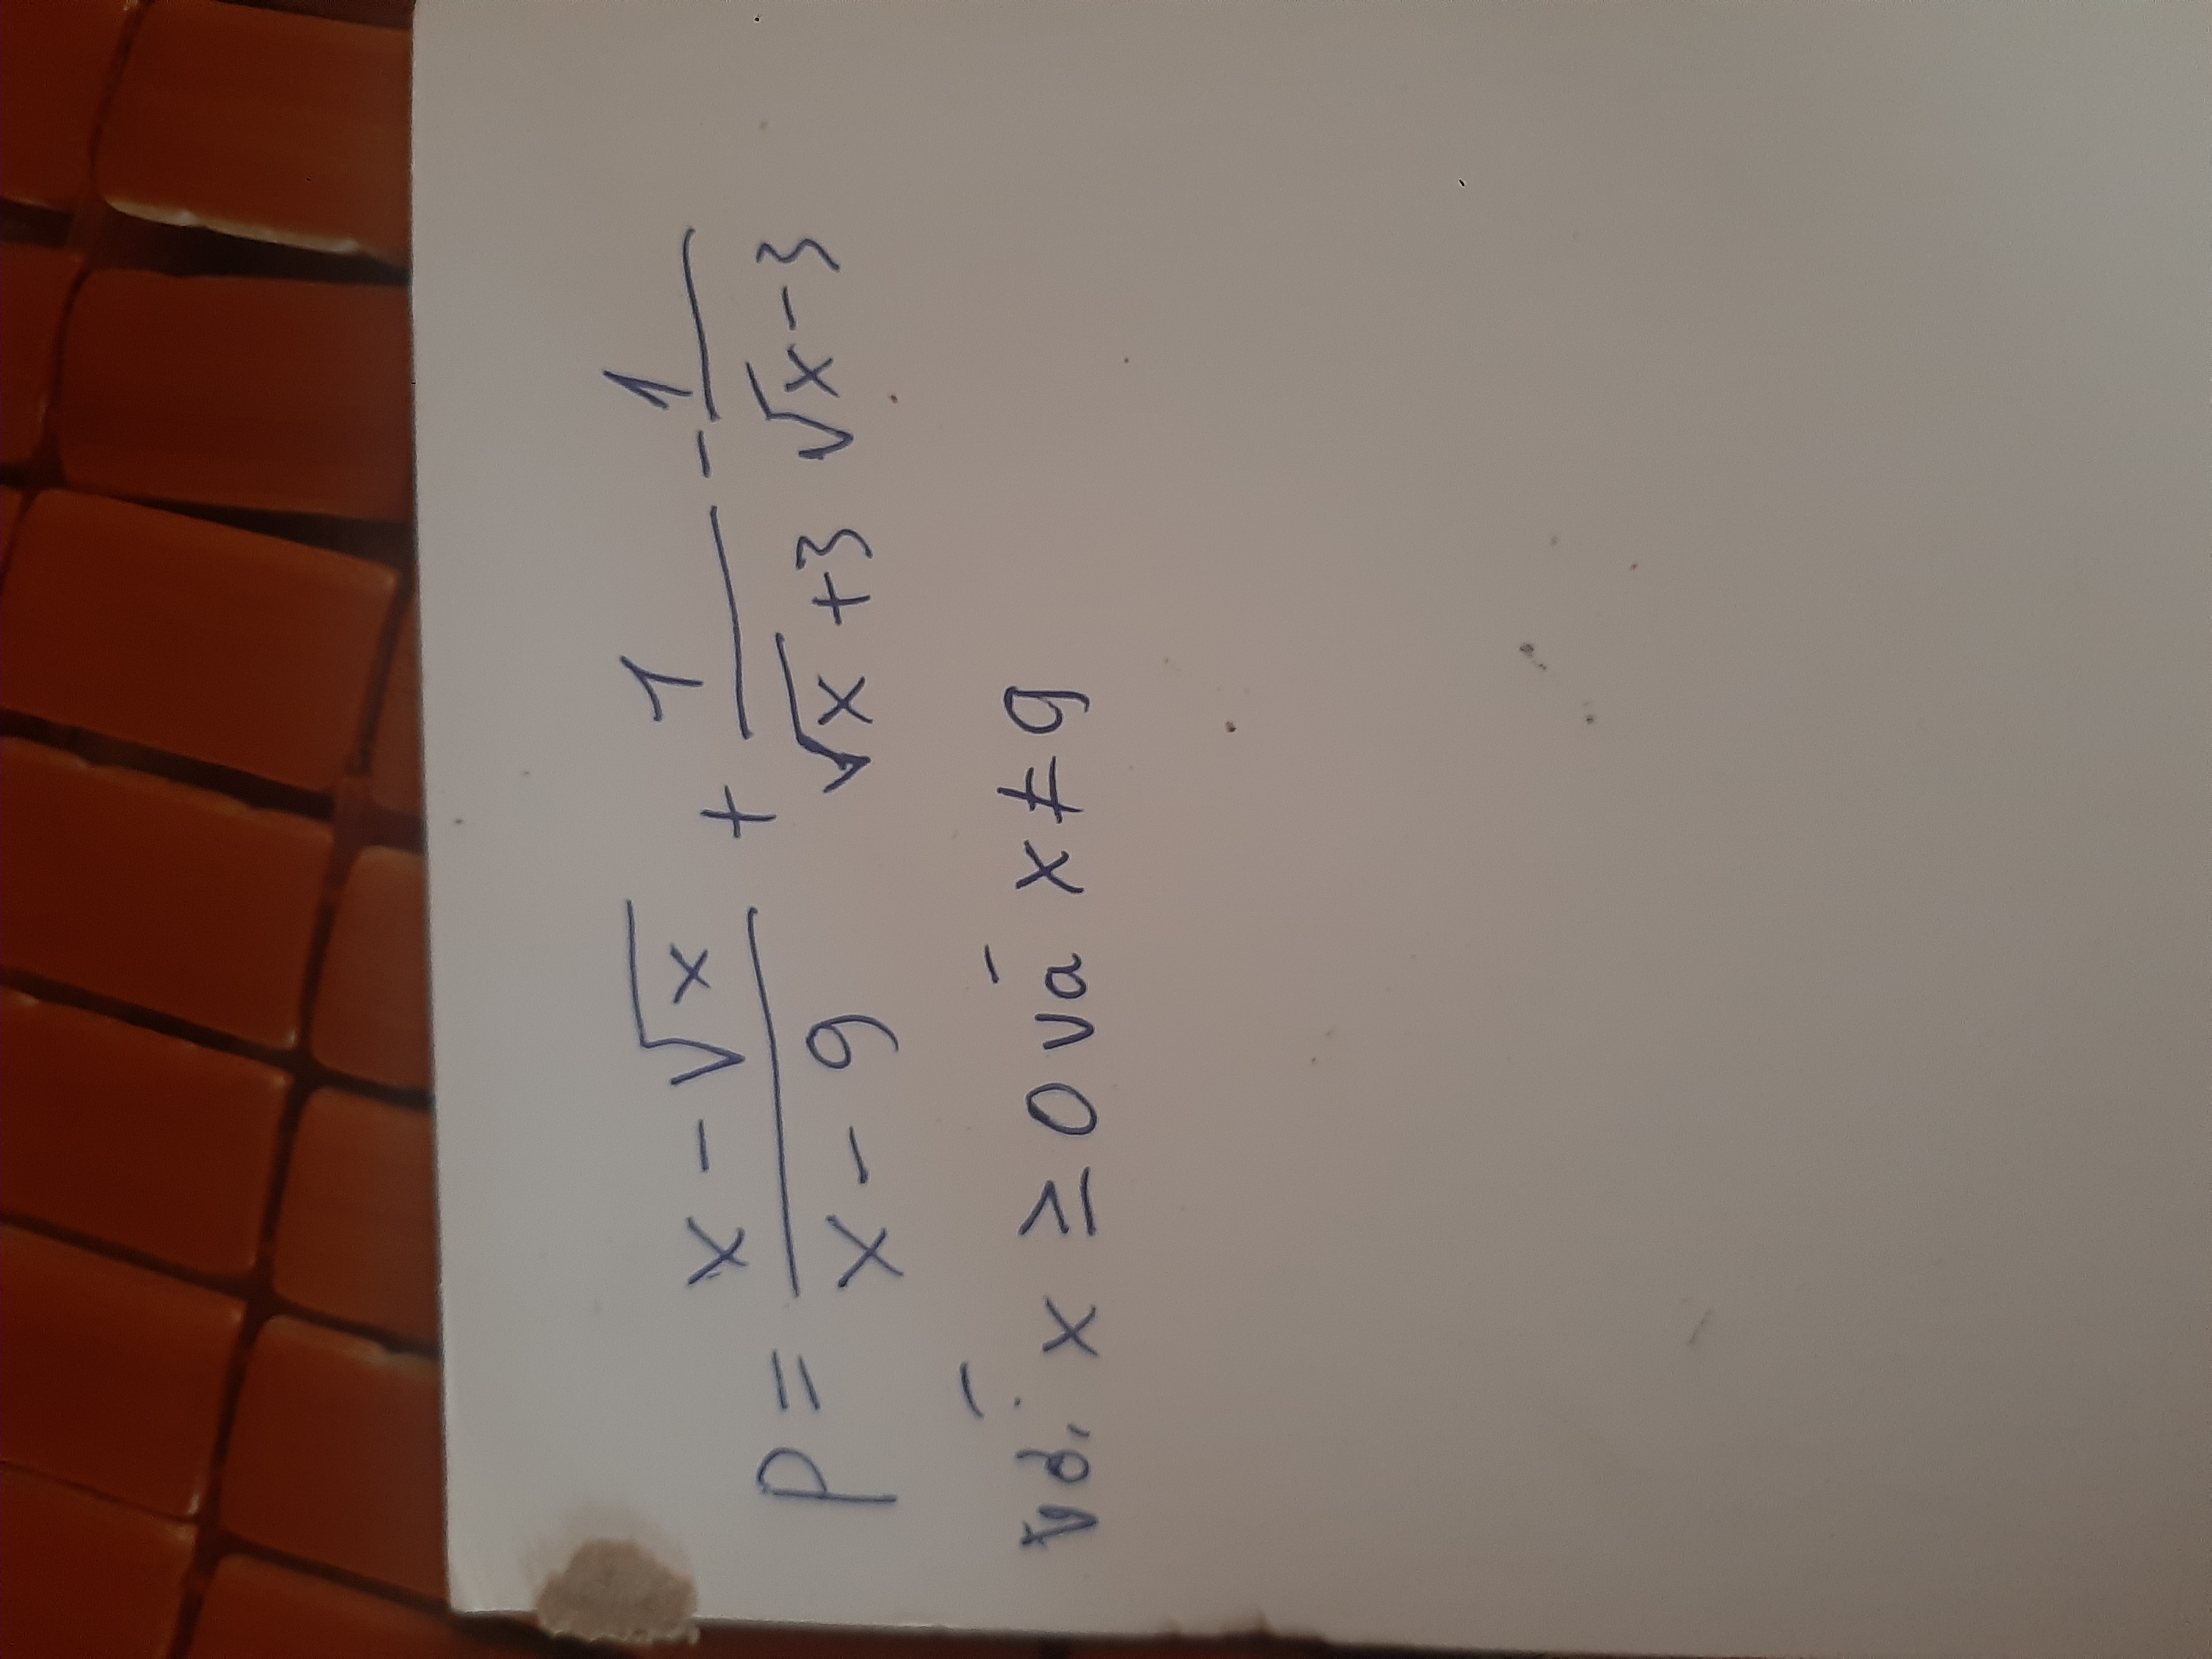 P = \frac{x - \sqrt{x}}{x - 9} + \frac{1}{\sqrt{x} + 3} - \frac{1}{\sqrt{x} - 3}
với x ≥ 0 và x ≠ 9